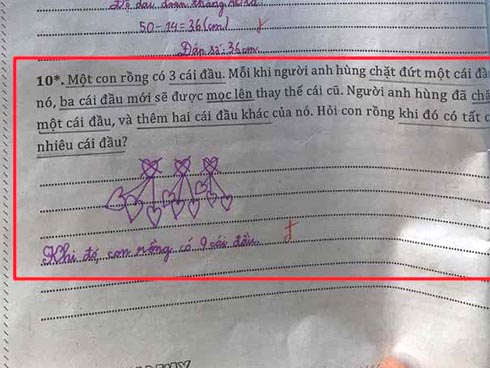 Độ dài đoạn thẳng
50 - 14 = 36 (cm)
Đáp số: 36cm.
10*. Một con rồng có 3 cái đầu. Mỗi khi người anh hùng chặt đứt một cái đầ
nó, ba cái đầu mới sẽ được mọc lên thay thế cái cũ. Người anh hùng đã chặ
một cái đầu, và thêm hai cái đầu khác của nó. Hỏi con rồng khi đó có tất c
nhiêu cái đầu?
Khi đó, con rồng có 9 cái đầu.